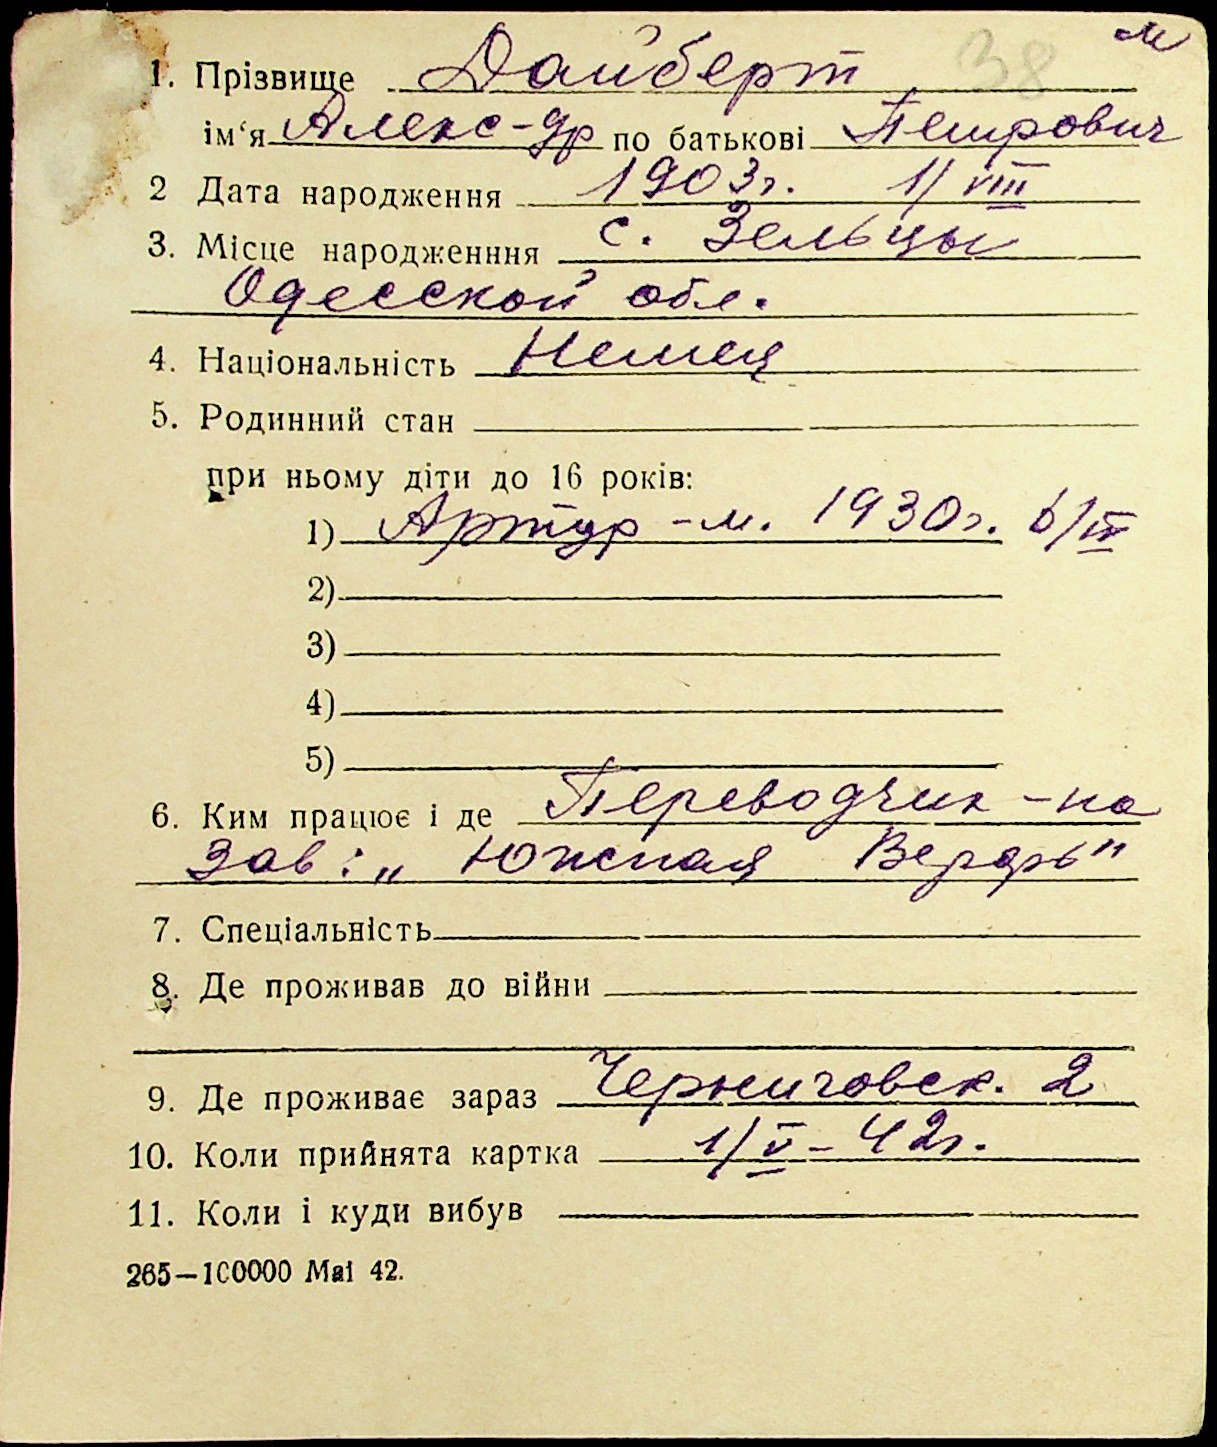 м
38
1. Прізвище Дайберт
ім‘я Алекс-др по батькові Петрович
2 Дата народження 1903г. 1/VIII
3. Місце народженння с. Зельцы
Одесской обл.
4. Національність Немец
5. Родинний стан
при ньому діти до 16 років:
1) Артур - м. 1930г. 6/IX
2)
3)
4)
5)
6. Ким працює і де Переводчик - на
Зав: „Южная Верфь"
7. Спеціальність
8. Де проживав до війни
9. Де проживає зараз Черниговск. 2
10. Коли прийнята картка 1/V - 42г.
11. Коли і куди вибув
265—100000 Mai 42.